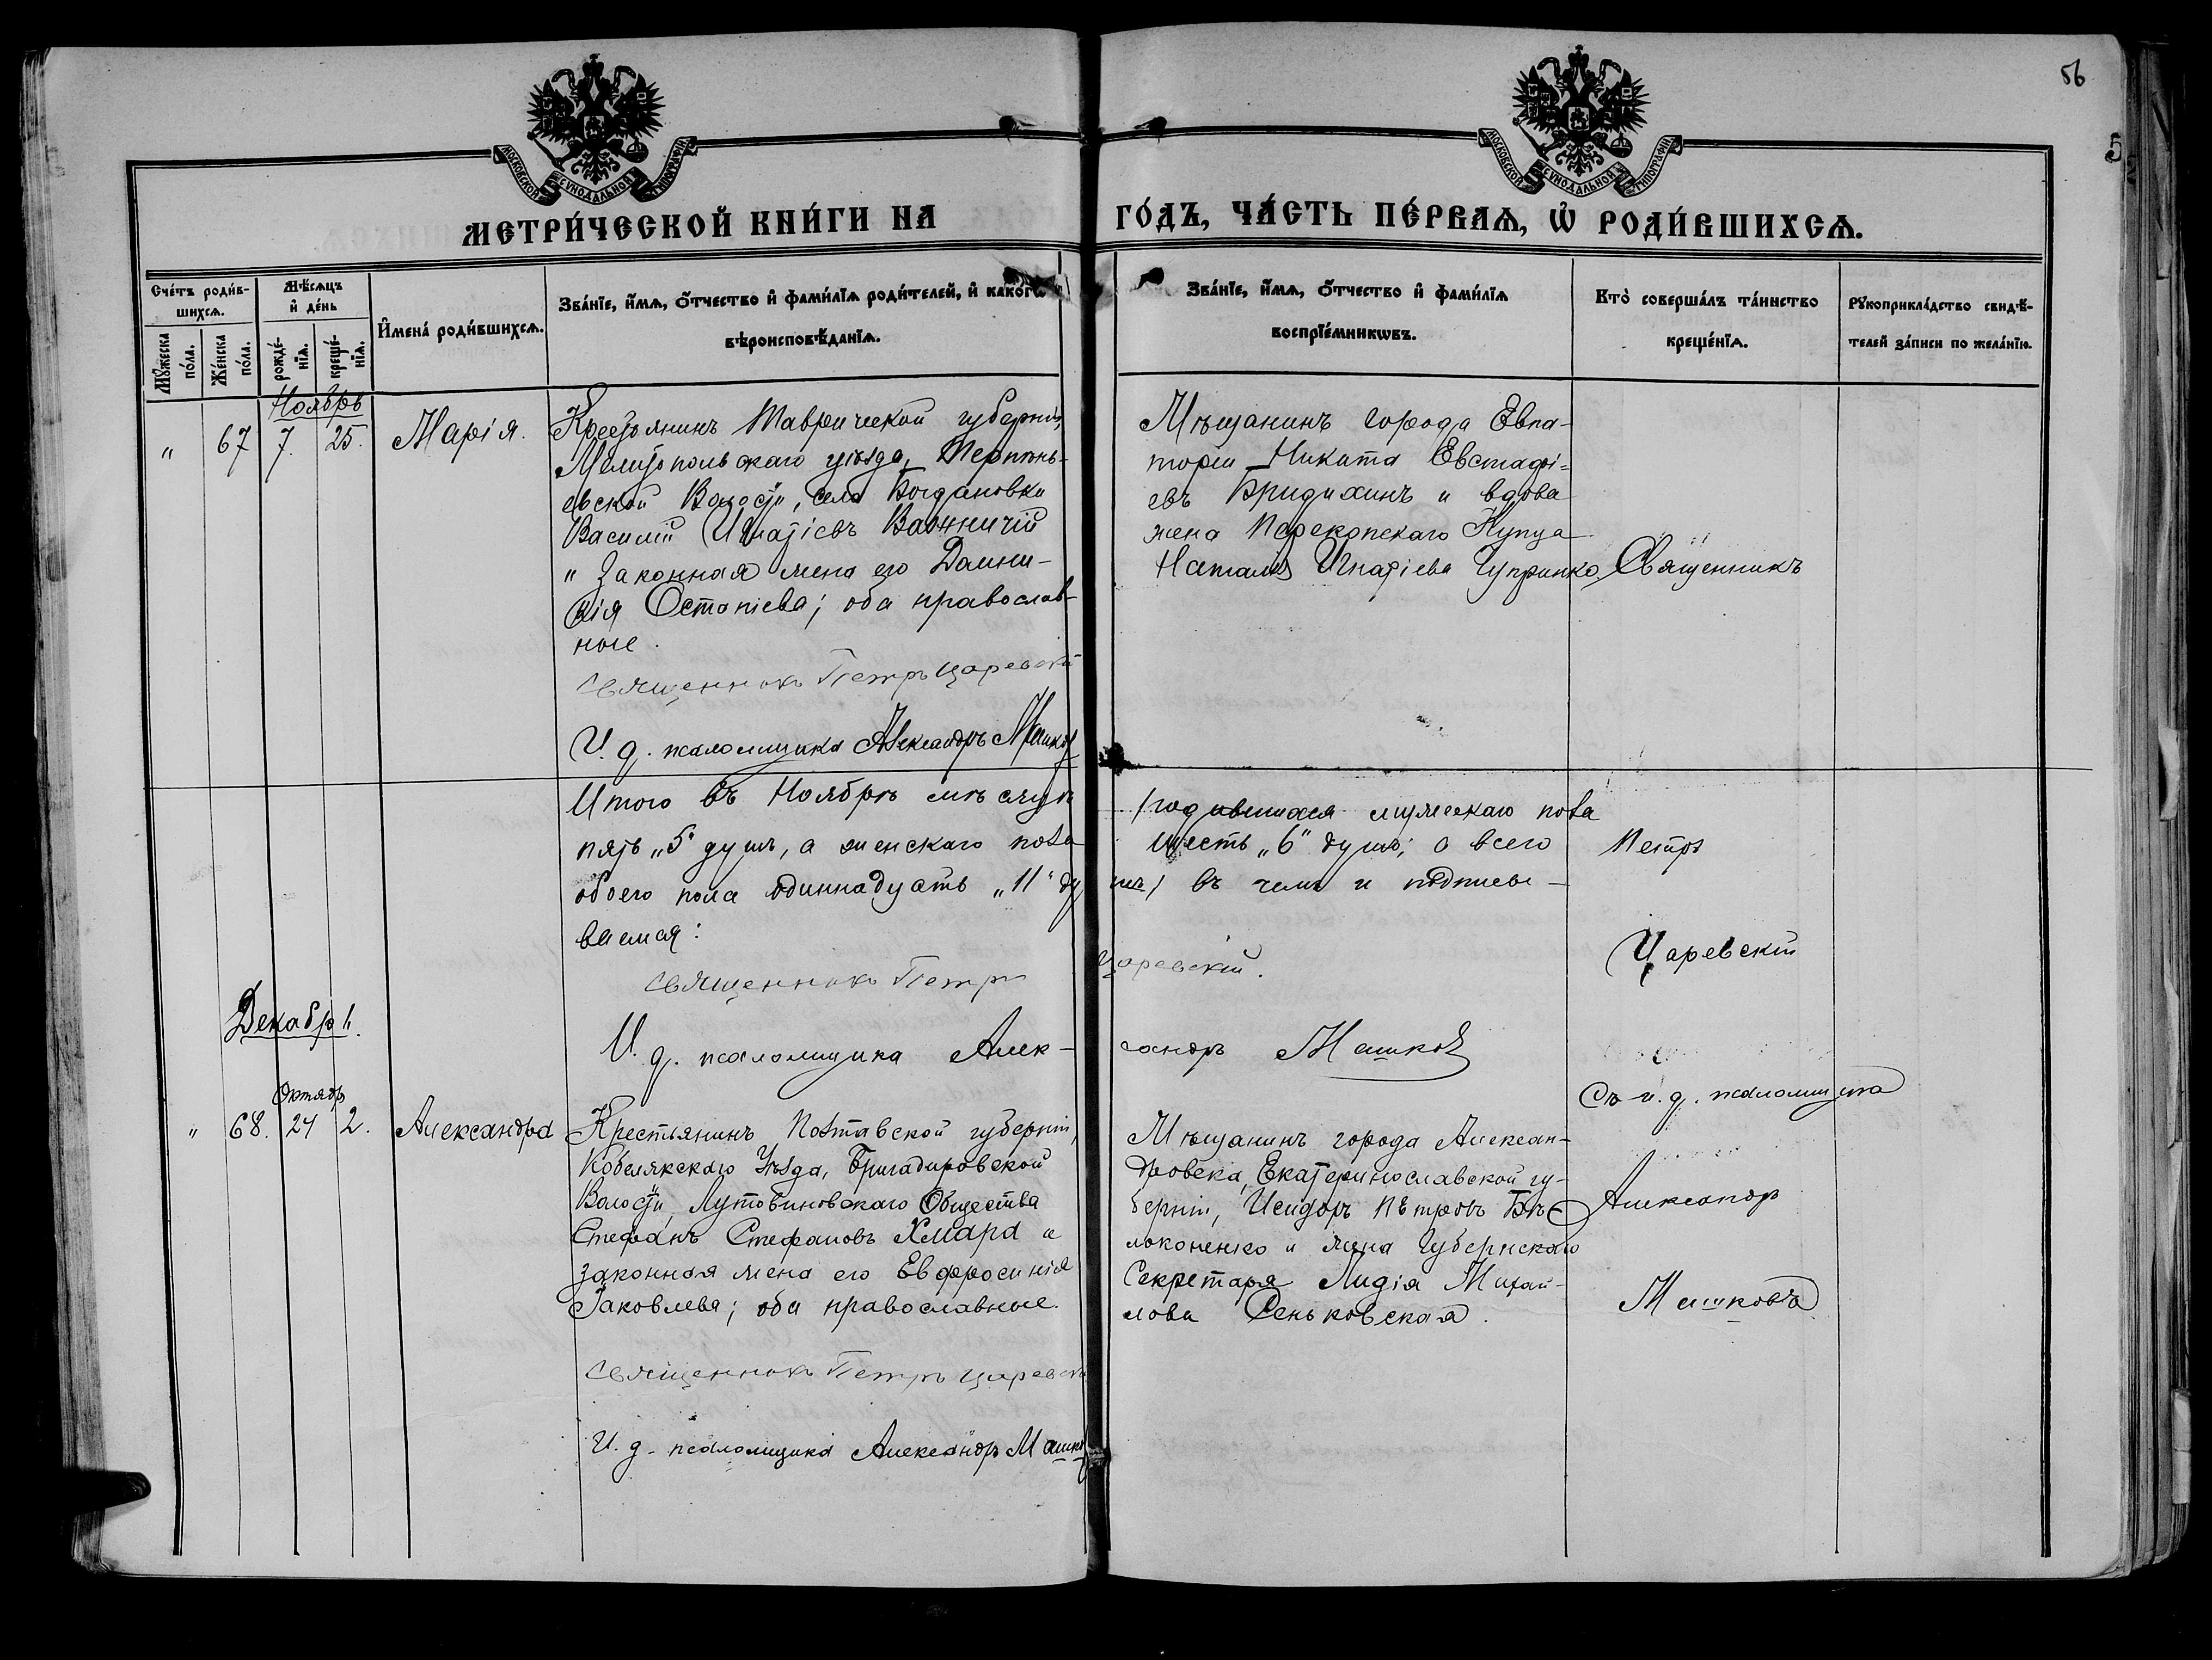 56
5
МОСКОВСКОЙ СѴНОДАЛЬНОЙ ТИПОГРАФІИ
МОСКОВСКОЙ СѴНОДАЛЬНОЙ ТИПОГРАФІИ
МЕТРИ́ЧЕСКОЙ КНИ́ГИ НА ГО́ДЪ, ЧА́СТЬ ПЕ́РВАѦ, Ѡ҆ РОДИ́ВШИХСѦ.
Сче́тъ роди́в-
шихсѧ.
Мꙋ́жеска по́ла.
Же́нска по́ла.
Мѣ́сѧцъ
и҆ де́нь
рожде́-
нїѧ.
креще́-
нїѧ.
И҆мена̀ роди́вшихсѧ.
Зва́нїе, и҆́мѧ, ѻ҆́тчество и҆ фами́лїѧ роди́телей, и҆ како́гѡ
вѣроисповѣ́данїѧ.
Зва́нїе, и҆́мѧ, ѻ҆́тчество и҆ фами́лїѧ
воспрїе́мникѡвъ.
Кто̀ соверша́лъ та́инство
креще́нїѧ.
Рꙋкоприкла́дство свидѣ́-
телей за́писи по жела́нїю.
Ноябрь
" 67 7. 25. Марія.
Крестьянинъ Таврической губерніи,
Мелитопольскаго уѣзда, Терпѣнь-
евской Волости, села Богдановки
Василій Игнатіевъ
и Законная жена его Домни-
кія Остапіева; оба православ-
ные.
Священникъ Петръ Царевскій
И. д. псаломщика Александръ Машковъ
Мѣщанинъ города Евпа-
торіи Никита Евстафі-
евъ Бридихинъ и вдова
жена Перекопскаго Купца
Наталія Игнатіева Чупринко.
Священникъ
Петръ
Царевскій
Съ и. д. псаломщика
Александръ
Машковъ
Итого въ Ноябрѣ мѣсяцѣ /родившихся мужескаго пола
пять „5" душъ, а женскаго пола шесть „6" душъ; а всего
обоего пола одиннадцать „11" душъ/ въ чемъ и подписы-
ваемся:
Священникъ Петръ Царевскій.
И. д. псаломщика Александръ Машковъ
Декабрь.
Октябр
" 68. 24 2. Александра
Крестьянинъ Полтавской губерніи,
Кобелякскаго Уѣзда, Бригадировской
Волости, Лутовиновскаго Общества
Стефанъ Стефановъ Хмара и
законная жена его Евфросинія
Іаковлева; оба православные.
Священникъ Петръ Царевскій
И. д. псаломщика Александръ Машков
Мѣщанинъ города Алексан-
дровска, Екатеринославской гу-
берніи, Исидоръ Петровъ Бѣ-
локоненко и жена Губернскаго
Секретаря Лидія Михай-
лова Сеньковская.